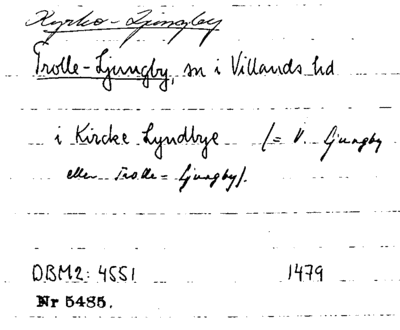 Kyrko-Ljungby
Trolle-Ljungby, sn i Villands hd
i Kircke Lyndbye (= V. Ljungby
eller Trolle=Ljungby).
DBM2: 4551 1479
Nr 5485.